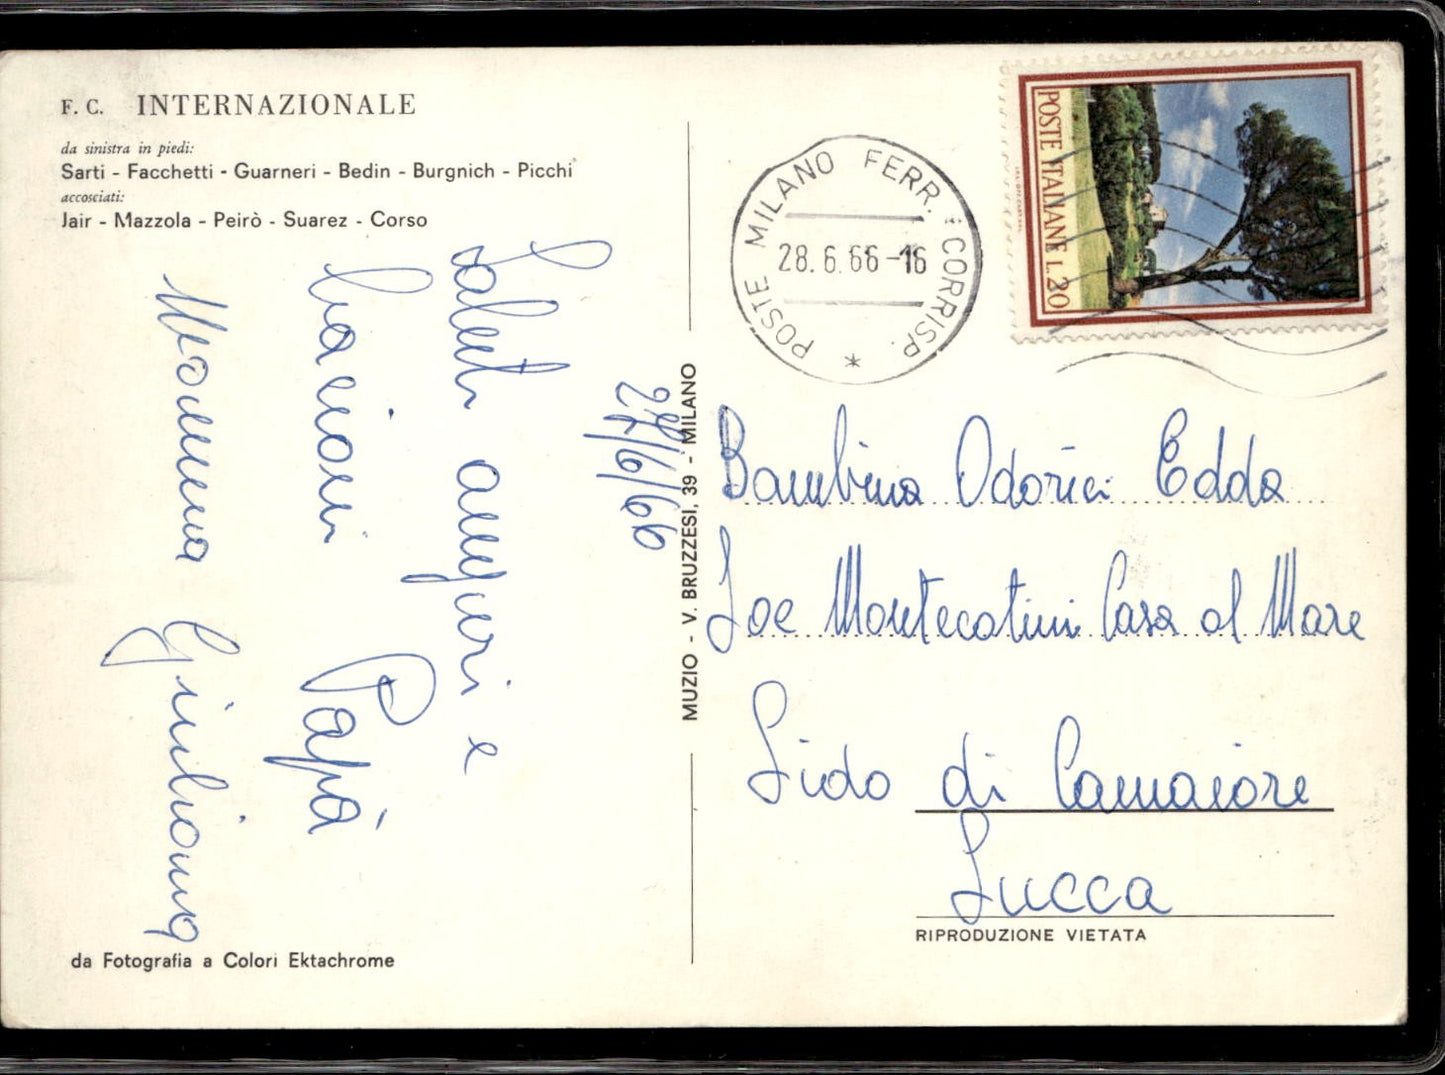 F. C. INTERNAZIONALE
da sinistra in piedi:
Sarti - Facchetti - Guarneri - Bedin - Burgnich - Picchi
accosciati:
Jair - Mazzola - Peirò - Suarez - Corso
27/6/66
auguri e
bacioni Papà
Mamma Giuliana
da Fotografia a Colori Ektachrome
MUZIO - V. BRUZZESI, 39 - MILANO
POSTE MILANO FERR. CORRISP. *
28.6.66-16
POSTE ITALIANE L.20
Bambina Odorici Edda
Montecatini Casa al Mare
Lido di Camaiore
Lucca
RIPRODUZIONE VIETATA